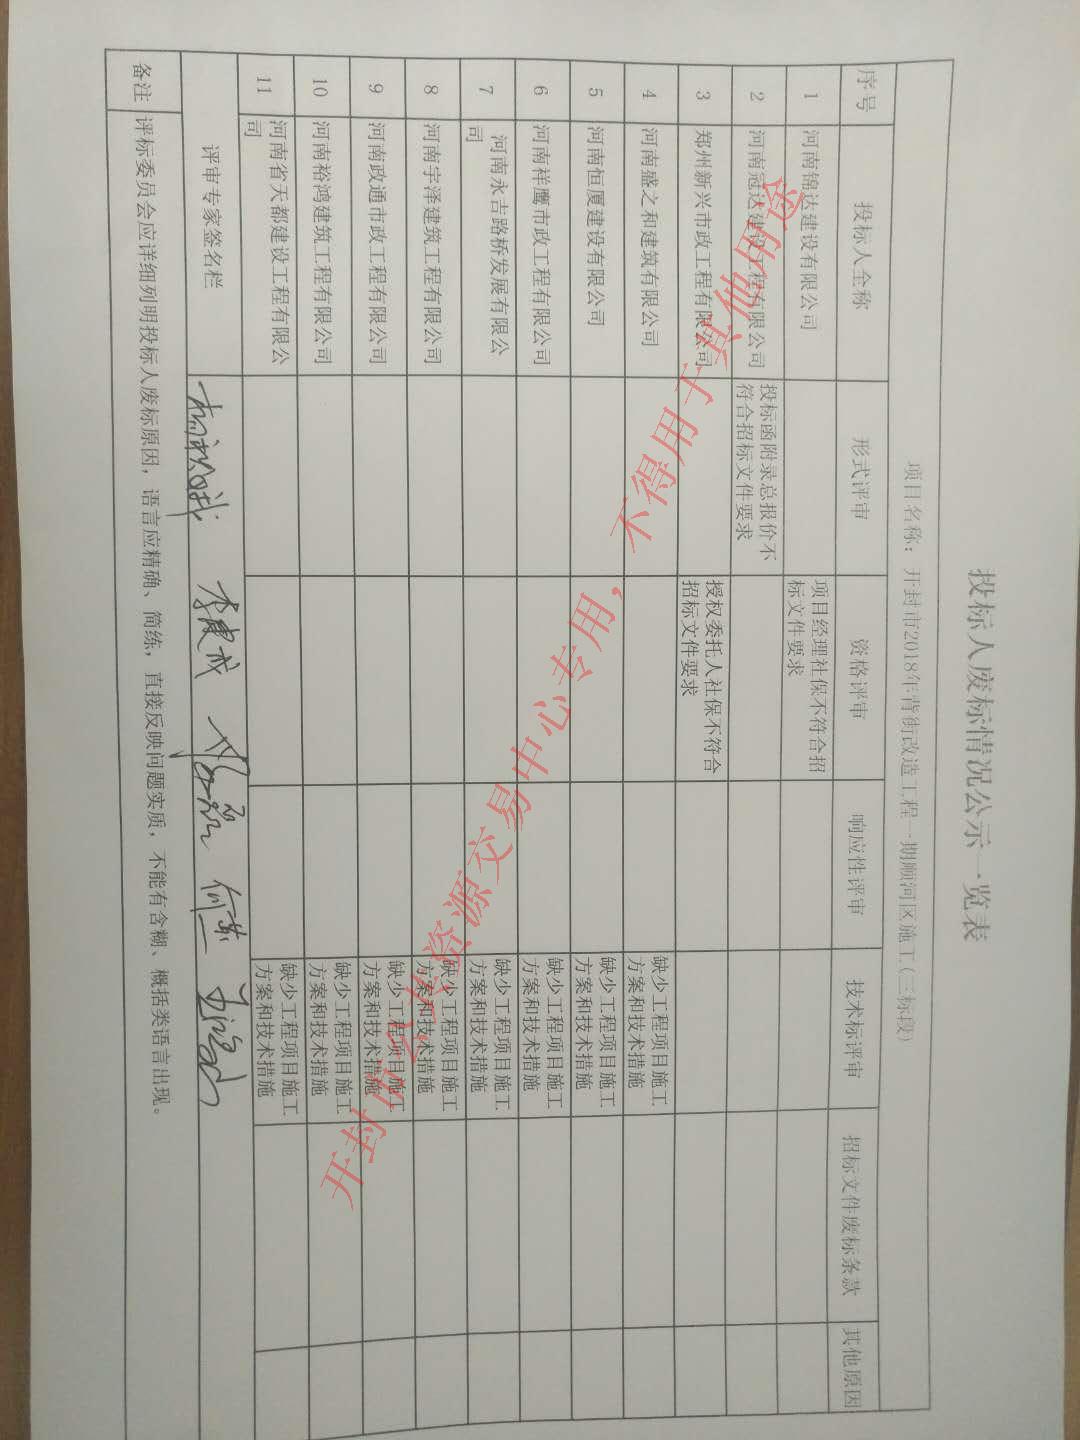 投标人废标情况公示一览表
项目名称：开封市2018年背街改造工程一期顺河区施工(三标段)
序号 投标人全称 形式评审 资格评审 响应性评审 技术标评审 招标文件废标条款 其他原因
1 河南锦达建设有限公司 项目经理社保不符合招
标文件要求
2 河南冠达建设工程有限公司 投标函附录总报价不
符合招标文件要求
3 郑州新兴市政工程有限公司 授权委托人社保不符合
招标文件要求
4 河南盛之和建筑有限公司 缺少工程项目施工
方案和技术措施
5 河南恒厦建设有限公司 缺少工程项目施工
方案和技术措施
6 河南祥鹰市政工程有限公司 缺少工程项目施工
方案和技术措施
7 河南永吉路桥发展有限公 缺少工程项目施工
司 方案和技术措施
8 河南宇泽建筑工程有限公司 缺少工程项目施工
方案和技术措施
9 河南政通市政工程有限公司 缺少工程项目施工
方案和技术措施
10 河南裕鸿建筑工程有限公司 缺少工程项目施工
方案和技术措施
11 河南省天都建设工程有限公 缺少工程项目施工
司 方案和技术措施
评审专家签名栏
备注 评标委员会应详细列明投标人废标原因，语言应精确、简练，直接反映问题实质，不能有含糊、概括类语言出现。
开封市公共资源交易中心专用，不得用于其他用途